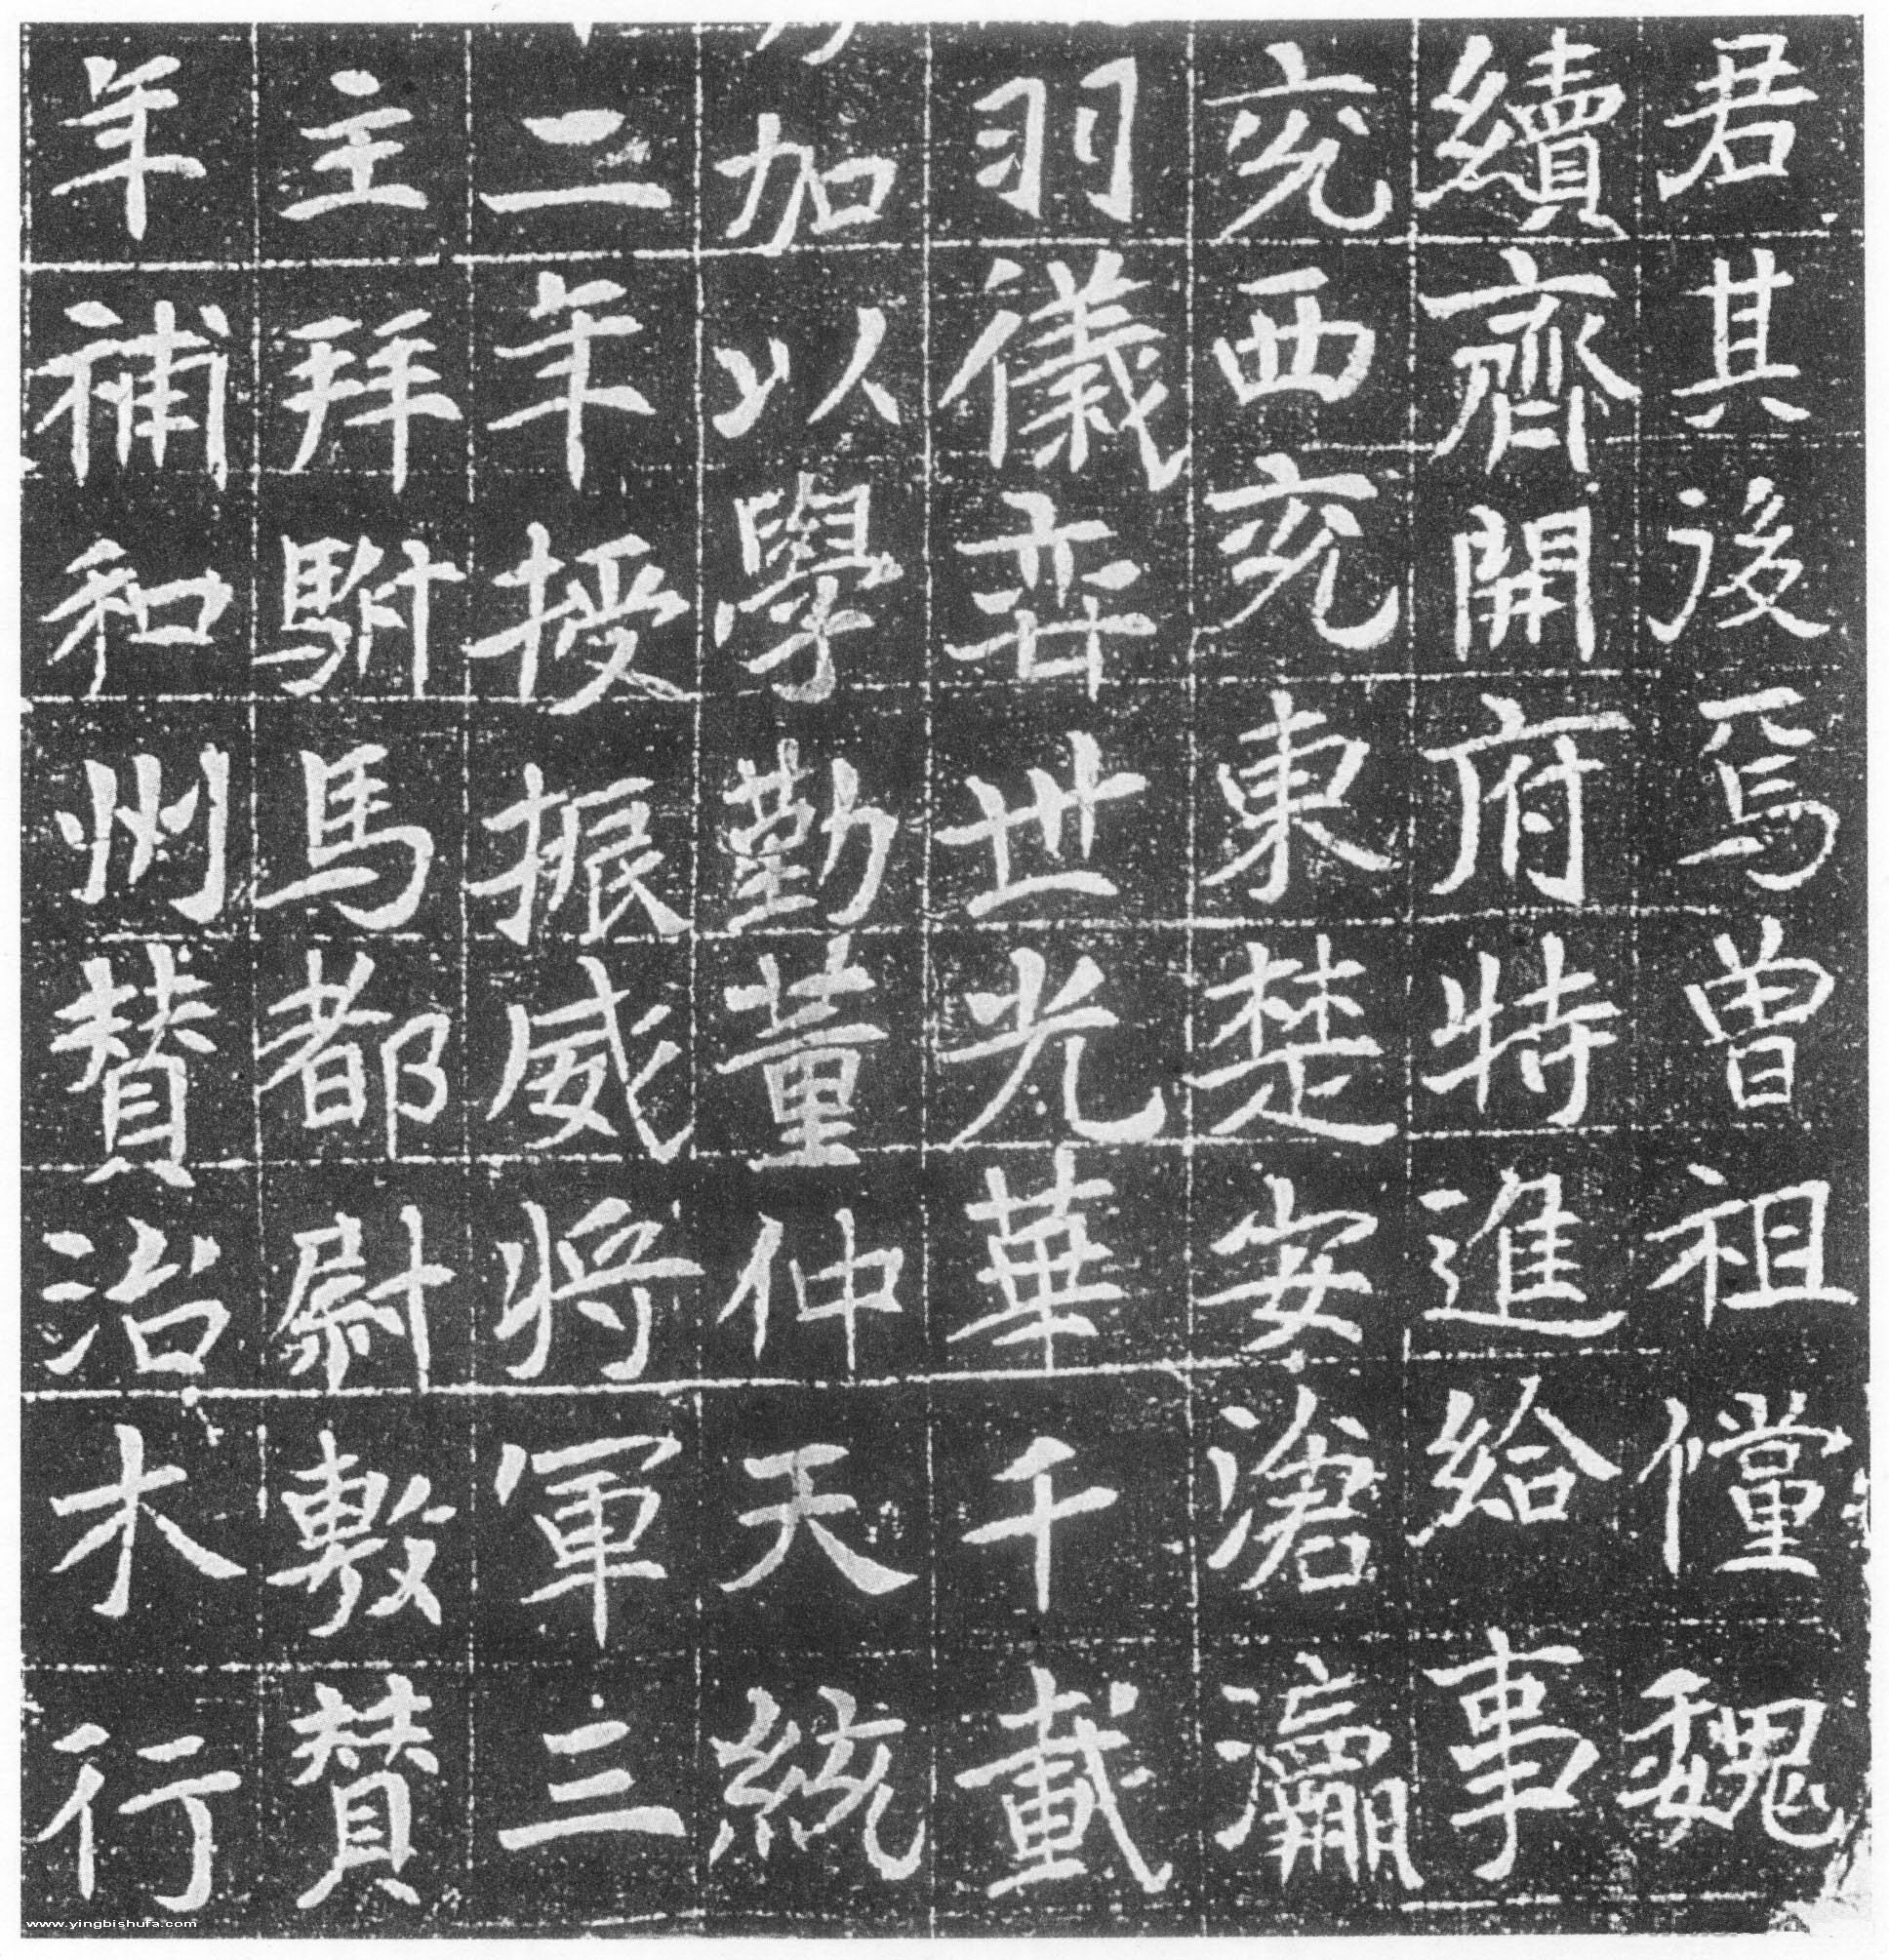 君其後焉曾祖儻魏
續齊開府特進給事
兖西兖東楚安滄瀛
羽儀弈世光華千載
加以學勤董仲天統
二年授振威將軍三
主拜駙馬都尉敷贊
年補和州贊治木行
www.yingbishufa.com